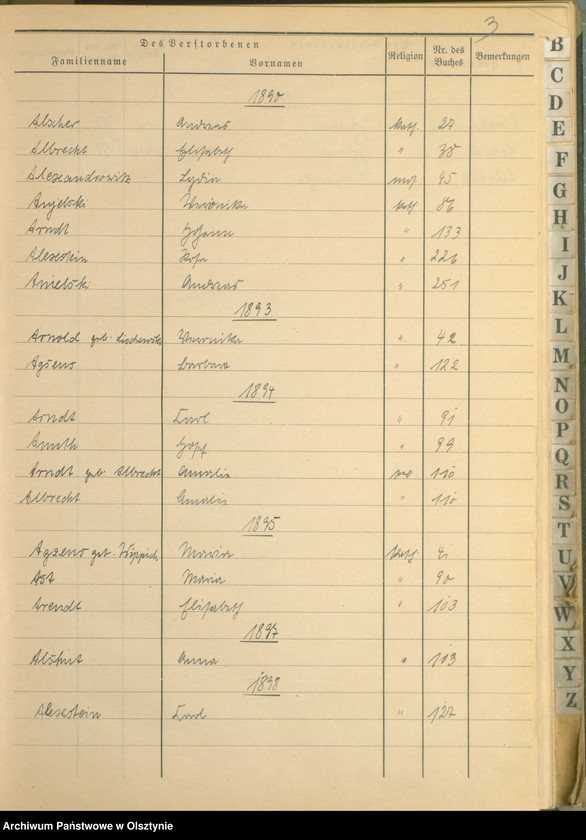 3
Des Verstorbenen
Familienname Vornamen Religion Nr. des Buches Bemerkungen
1890
Alscher Andreas kath. 27
Albrecht Elisabeth " 38
Alexandrowitz Lydia 95
Anjelski Veronika kath 86
Arndt Johann " 133
Alexstein " 226
Anielski Andreas " 251
1893
Arnold geb. Lischewski Veronika " 42
Agsens Barbara " 122
1894
Arndt Karl " 91
Amuth Josef " 99
Arndt geb. Albrecht Amalie 110
Albrecht Amalie " 110
1895
Agzens geb. Maria kath.
Ast Maria " 90
Arendt Elisabeth " 103
1897
Alshut Anna " 103
1898
Alexstein Karl " 127
B
C
D
E
F
G
H
I
J
K
L
M
N
O
P
Q
R
S
T
U
V
W
X
Y
Z
Archiwum Państwowe w Olsztynie